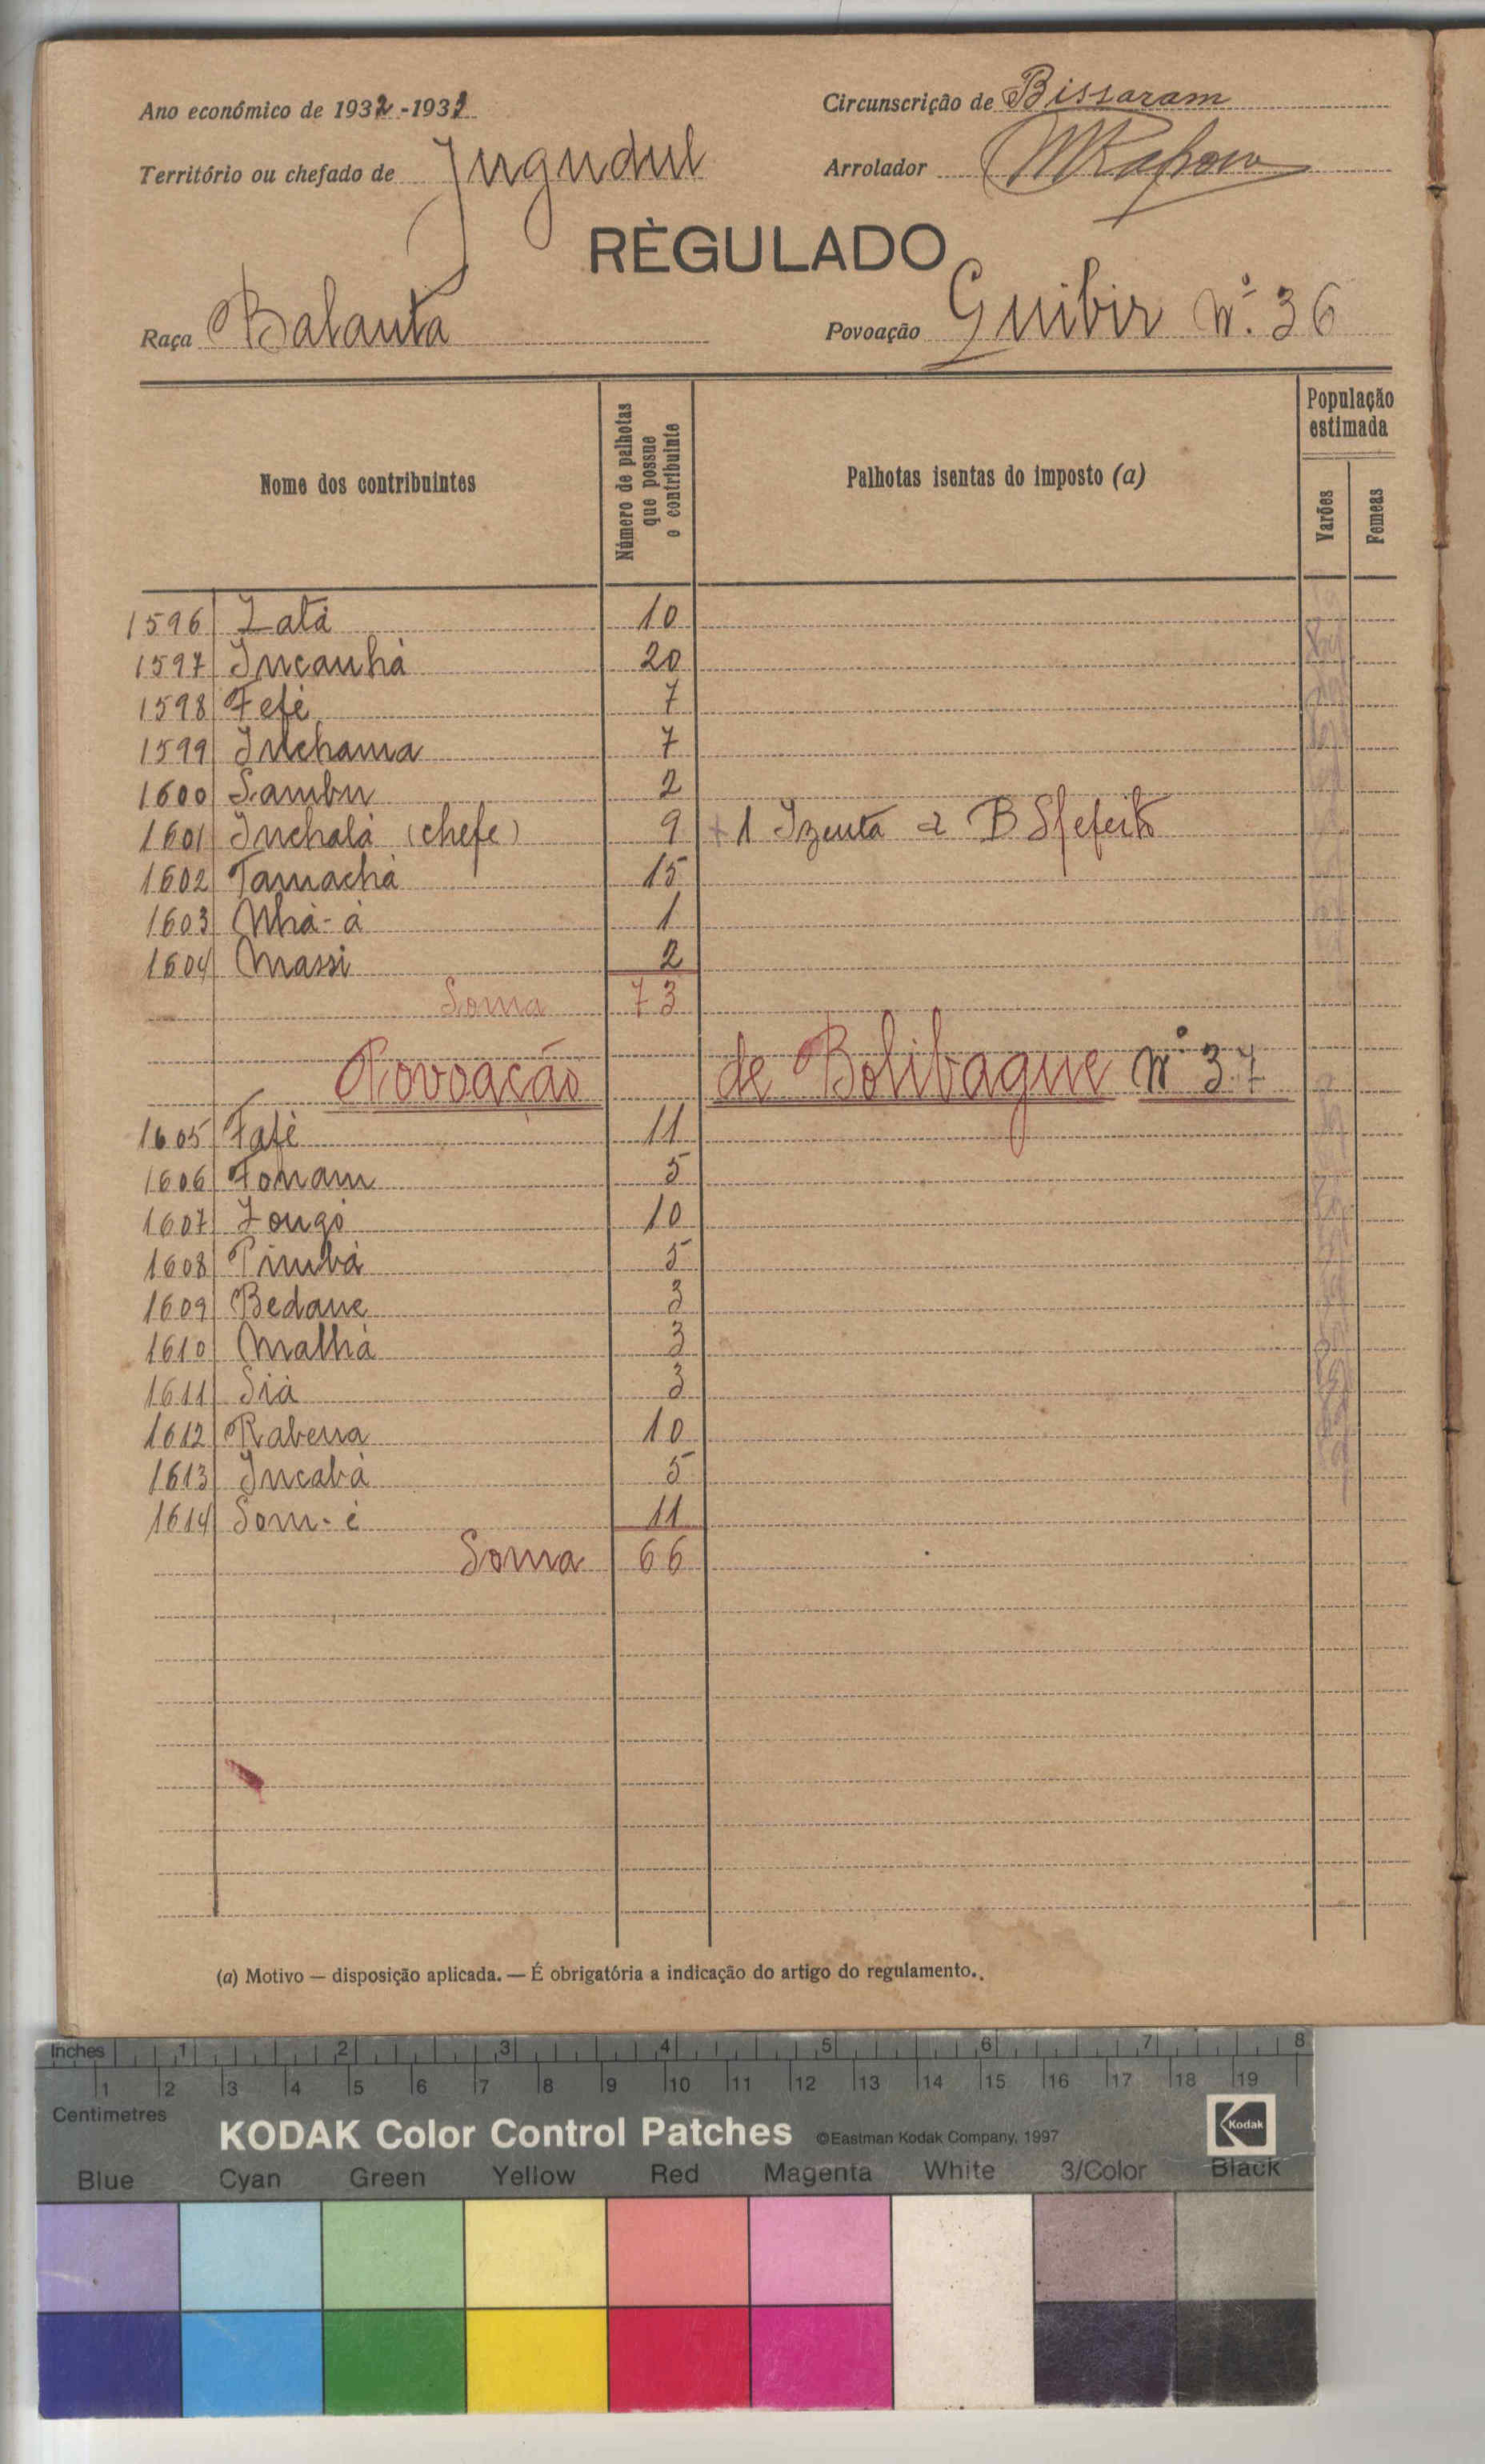 Ano económico de 1932-1933
Circunscrição de Bissaram
Território ou chefado de Jugudul
Arrolador
RÈGULADO
Raça Balanta
Povoação Guibir Nº 36
Nome dos contribuintes
Número de palhotas que possue o contribuinte
Palhotas isentas do imposto (a)
População estimada
Varões
Femeas
1596 Zatá 10
1597 Incanhá 20
1598 Fefé 7
1599 Inchama 7
1600 Sambu 2
1601 Inchalá (chefe) 9 + 1 Izenta
1602 Tamachá 15
1603 Nhá-á 1
1604 Massi 2
Soma 73
Povoação de Bolibaque Nº 37
1605 Fafé 11
1606 Fonam 5
1607 Zongó 10
1608 Pimbá 5
1609 Bedane 3
1610 Malhá 3
1611 Siá 3
1612 Rabena 10
1613 Incabá 5
1614 Som-é 11
Soma 66
(a) Motivo — disposição aplicada. — É obrigatória a indicação do artigo do regulamento.
Inches 1 2 3 4 5 6 7 8
1 2 3 4 5 6 7 8 9 10 11 12 13 14 15 16 17 18 19
Centimetres
KODAK Color Control Patches ©Eastman Kodak Company, 1997 Kodak
Blue Cyan Green Yellow Red Magenta White 3/Color Black